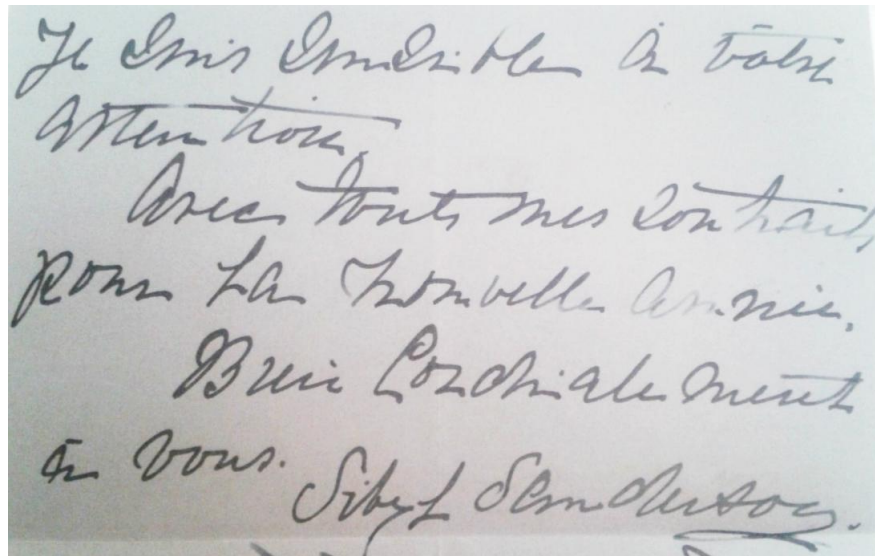 Je suis sensible à votre
attention,
Avec touts mes souhaits
pour la nouvelle année.
Bien cordialement
à vous.
Sibyl Sanderson.